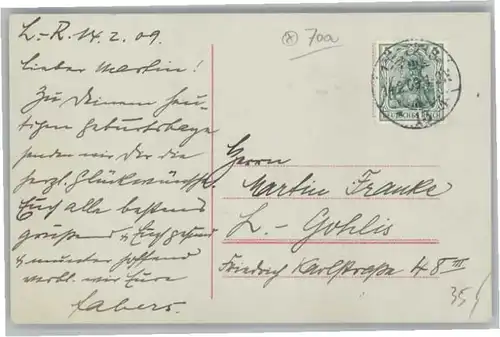 L.-R. 14.2.09.
Lieber Martin!
Zu Deinem heu-
tigen Geburtstage
senden wir Dir die
herzl. Glückwünsche.
Euch alle bestens
grüßend & Euch gesund
& munter hoffend
verbl. wir Eure
Fabers.
700
DEUTSCHES REICH
14.2.09
Herrn
Martin Franke
L.-Gohlis
Friedrich Karlstraße 48 III
35